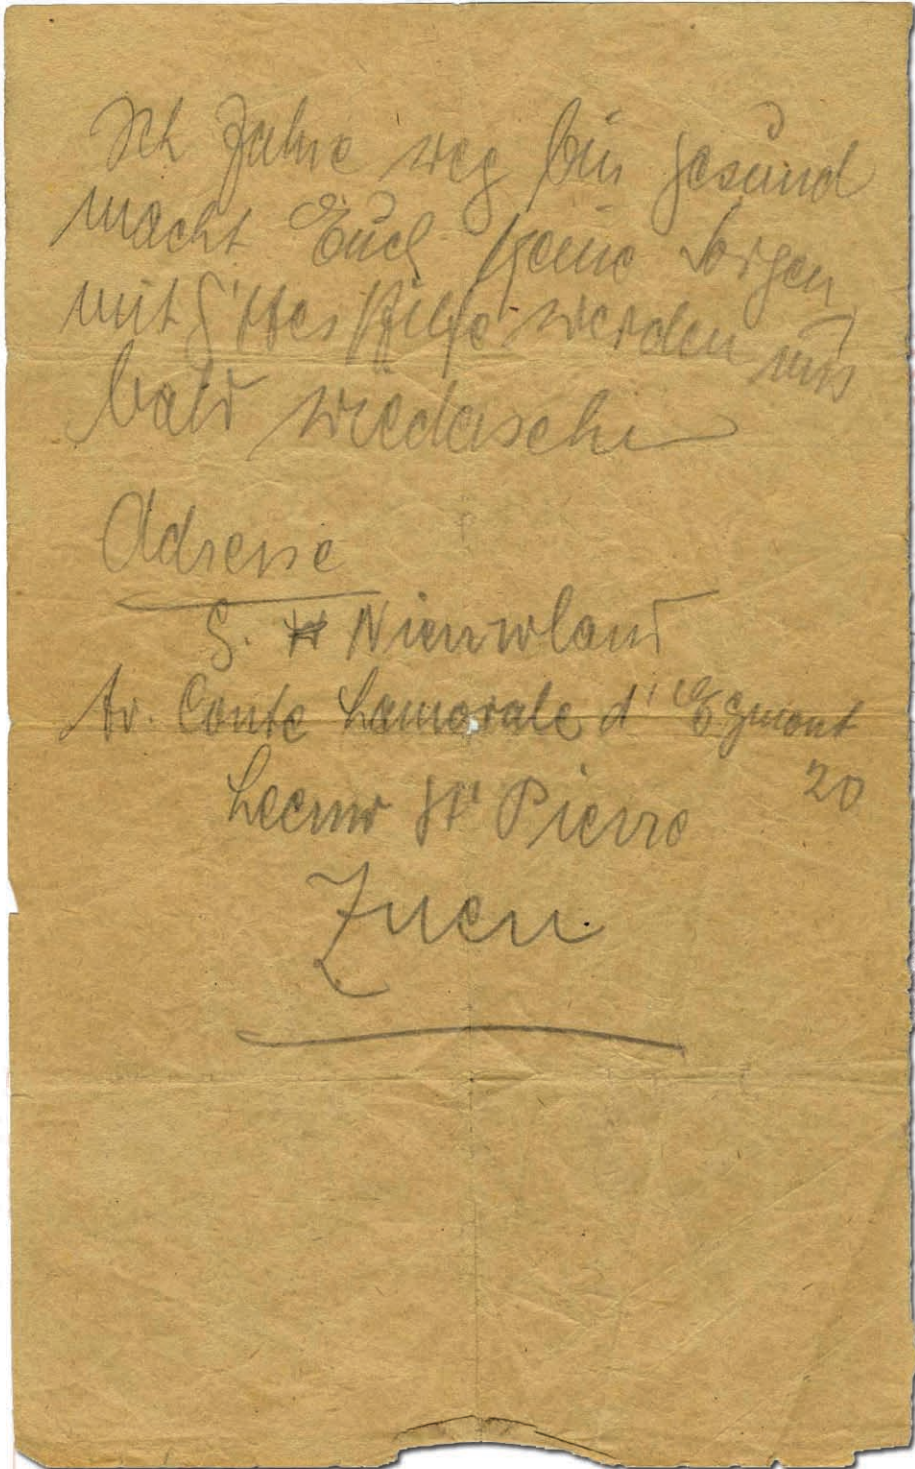 Ich fahre weg bin gesund
macht Euch keine Sorgen
mit G'ttes Hilfe werden uns
bald wiedersehn
Adresse
S. Nieuwland
Av. Conte Lamorale d' Egmont
20
Leeuw St Pierre
Zuen